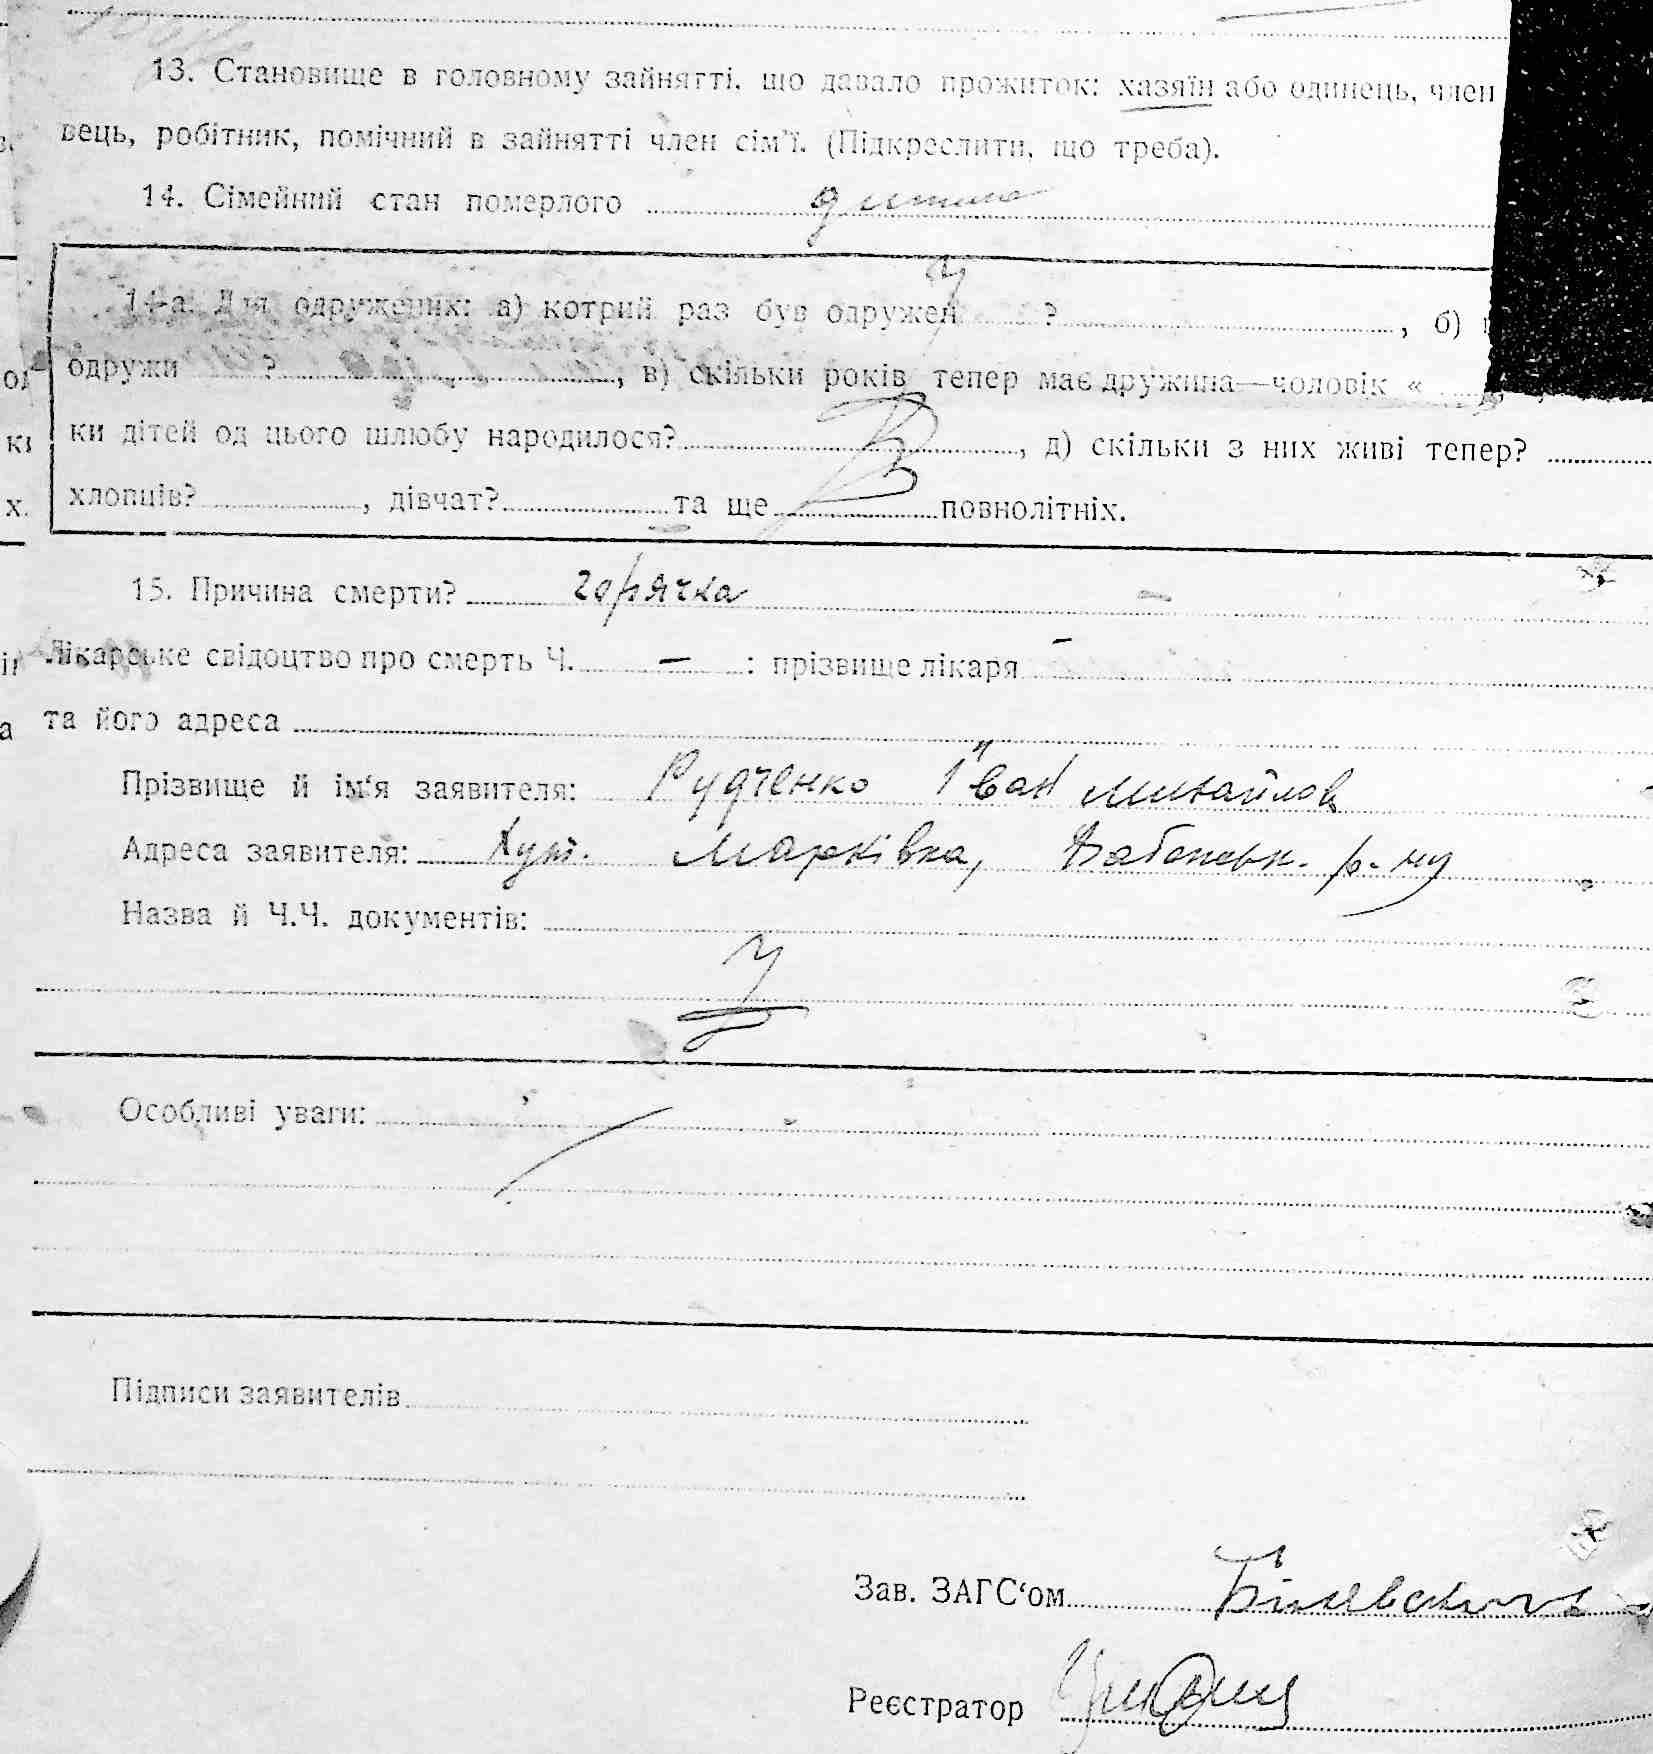 13. Становище в головному зайнятті, що давало прожиток: хазяїн або одинець, член
вець, робітник, помічний в зайнятті член сім'ї. (Підкреслити, що треба).
14. Сімейний стан померлого дитина
14-а. Для одружених: а) котрий раз був одружен ? , б)
одружи ? , в) скільки років тепер має дружина—чоловік «
ки дітей од цього шлюбу народилося? , д) скільки з них живі тепер?
хлопців? , дівчат? та ще повнолітніх.
15. Причина смерти? горячка
Лікарське свідоцтво про смерть Ч. — : прізвище лікаря –
та його адреса
Прізвище й ім'я заявителя: Рудченко Іван Михайлов
Адреса заявителя: Хут. Марківка, р-ну
Назва й Ч.Ч. документів:
Особливі уваги:
Підписи заявителів
Зав. ЗАГС'ом
Реєстратор